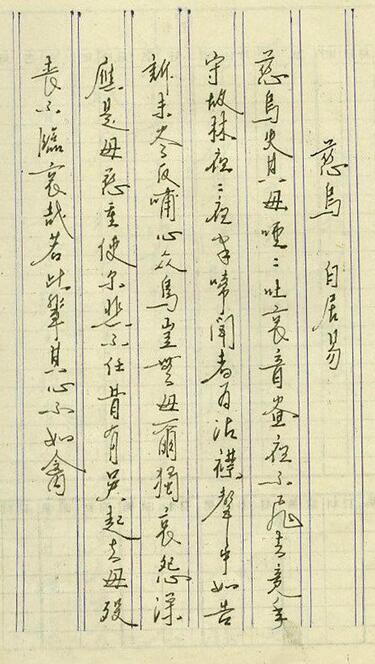 慈烏 白居易
慈烏失其母哑〻吐哀音昼夜不飛去竟年
守故林夜〻夜半啼聞者为沾襟聲中如告
訴未尽反哺心众鳥豈無母爾獨哀怨深
應是母慈重使尔悲不任昔有吴起者母殁
丧不臨哀哉若此輩其心不如禽